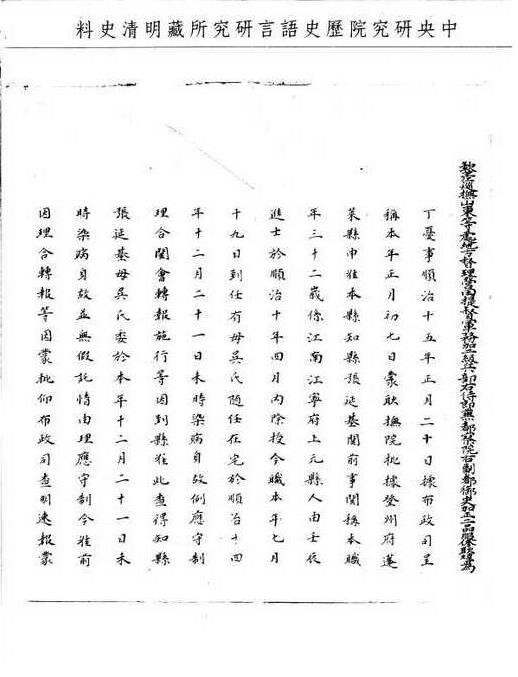 中央研究院歷史語言研究所藏明清史料
敕巡撫山東等處地方督理營田提督軍務加一級兵部右侍郎兼都察院右副都御史加正二品服俸耿焞為
丁憂事順治十五年正月二十日據布政司呈
稱本年正月初七日蒙耿撫院批據登州府蓬
萊縣申准本縣知縣張延基關前事關稱本職
年三十二歲係江南江寧府上元縣人由壬辰
進士於順治十年四月內除授今職本年七月
十九日到任有母吳氏隨任在宅於順治十四
年十二月二十一日未時染病身故例應守制
理合關會轉報施行等因到縣准此查得知縣
張延基母吳氏委於本年十二月二十一日未
時染病身故並無假託情由理應守制今准前
因理合轉報等因蒙批仰布政司查明速報蒙